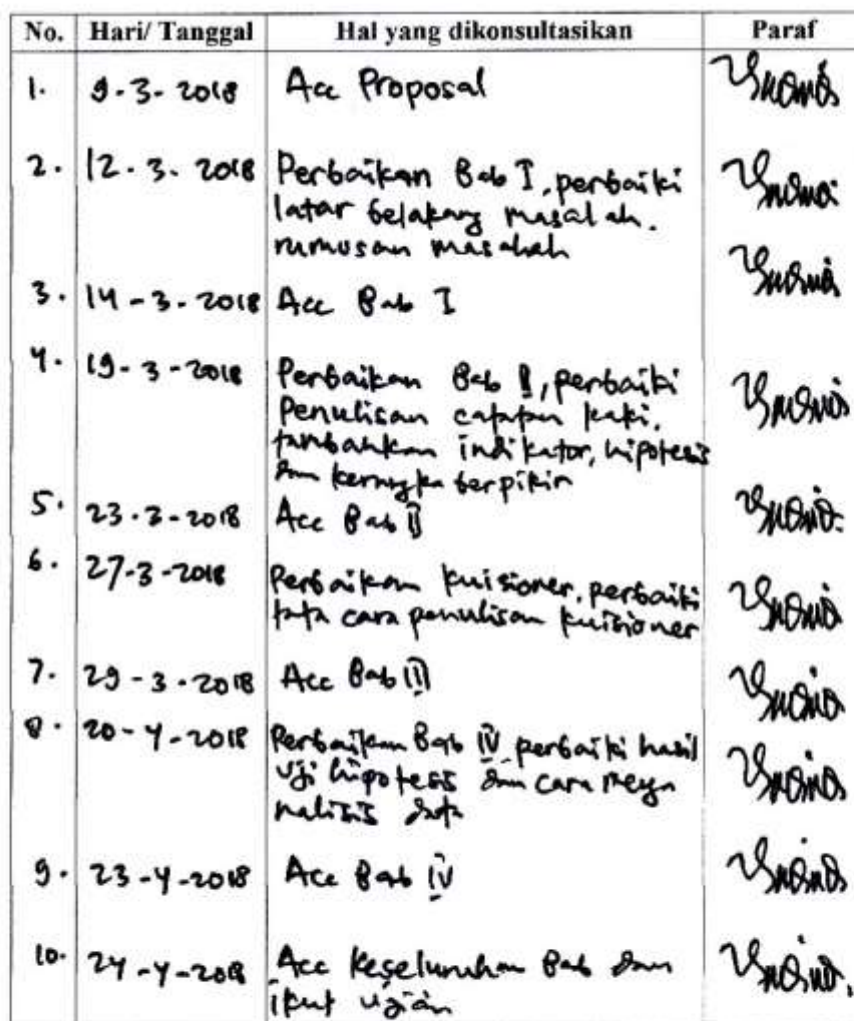 No. Hari/ Tanggal Hal yang dikonsultasikan Paraf
1. 9-3-2018 Acc Proposal
2. 12.3.2018 Perbaikan Bab I, perbaiki
latar belakang masalah.
rumusan masalah
3. 14-3-2018 Acc Bab I
4. 19-3-2018 Perbaikan Bab II, perbaiki
Penulisan catatan kaki,
tambahkan indikator, hipotesis
dan kerangka berpikir
5. 23-3-2018 Acc Bab II
6. 27-3-2018 Perbaikan kuisioner, perbaiki
tata cara penulisan kuisioner
7. 29-3-2018 Acc Bab III
8. 20-4-2018 Perbaikan Bab IV perbaiki hasil
Uji hipotesis dan cara menga
nalisis data
9. 23-4-2018 Acc Bab IV
10. 24-4-2018 Acc Keseluruhan Bab dan
ikut ujian